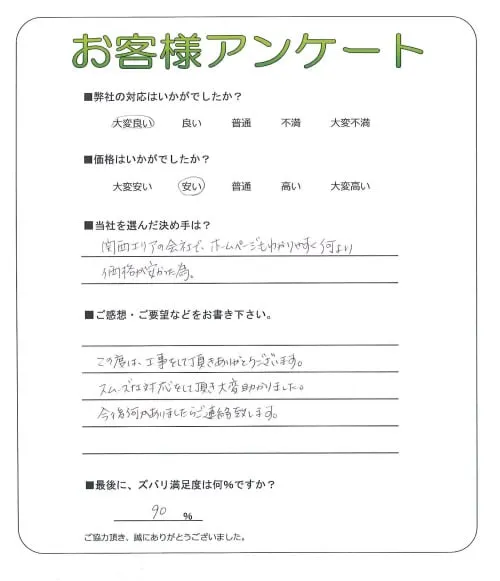 お客様アンケート
■弊社の対応はいかがでしたか？
大変良い 良い 普通 不満 大変不満
■価格はいかがでしたか？
大変安い 安い 普通 高い 大変高い
■当社を選んだ決め手は？
関西エリアの会社で、ホームページもわかりやすく何より
価格が安かった為。
■ご感想・ご要望などをお書き下さい。
この度は、工事をして頂きありがとうございます。
スムーズな対応をして頂き大変助かりました。
今後何かありましたらご連絡致します。
■最後に、ズバリ満足度は何％ですか？
90 ％
ご協力頂き、誠にありがとうございました。